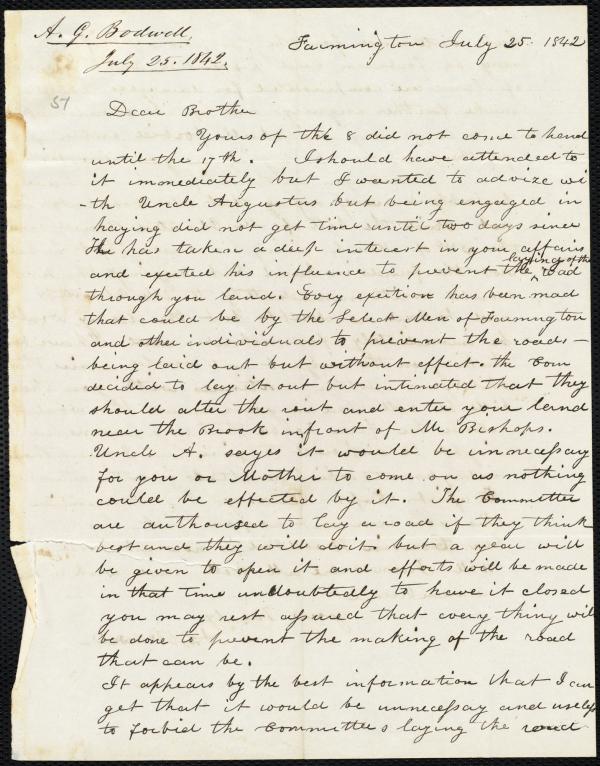 A. G. Bodwell,
July 25. 1842.
Farmington July 25. 1842
51
Dear Brother
Yours of the 8 did not come to hand
until the 17th. I should have attended to
it immediately but I wanted to advize wi
-th Uncle Augustus but being engaged in
haying did not get time until two days since
He has taken a deep interest in your affairs
and exerted his influence to prevent the laying of the road
through you land. Evry exertion has been mad
that could be by the Select Men of Farmington
and other individuals to prevent the roads-
being laid out but without effect. the Com
decided to lay it out but intimated that they
should alter the rout and enter your land
near the Brook infront of Mr Bishops.
Uncle A. says it would be unnecessary
for you or Mother to come on as nothing
could be effected by it. The Committee
are authorised to lay a road if they think
best and they will doit but a year will
be given to open it and efforts will be made
in that time undoubtedly to have it closed
you may rest assured that every thing will
be done to prevent the making of the road
that can be.
It appears by the best information that I can
get that it would be unnecessary and useless
to forbid the Committees laying the road